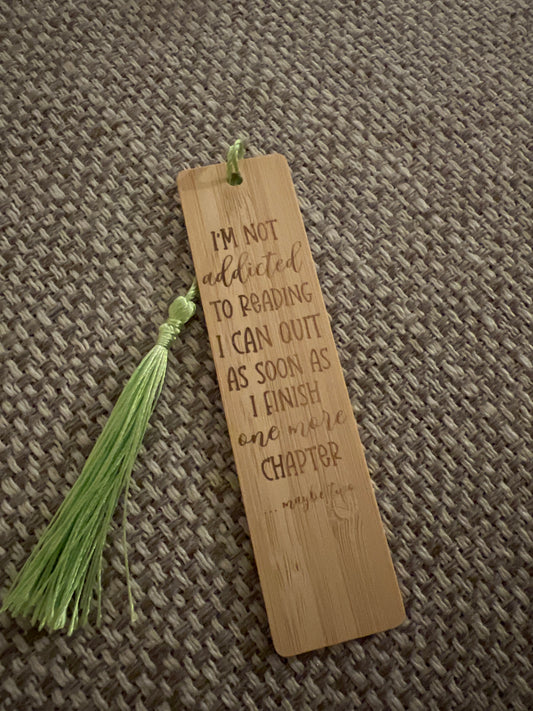 I'M NOT
addicted
TO READING
I CAN QUIT
AS SOON AS
I FINISH
one more
CHAPTER
... maybe two